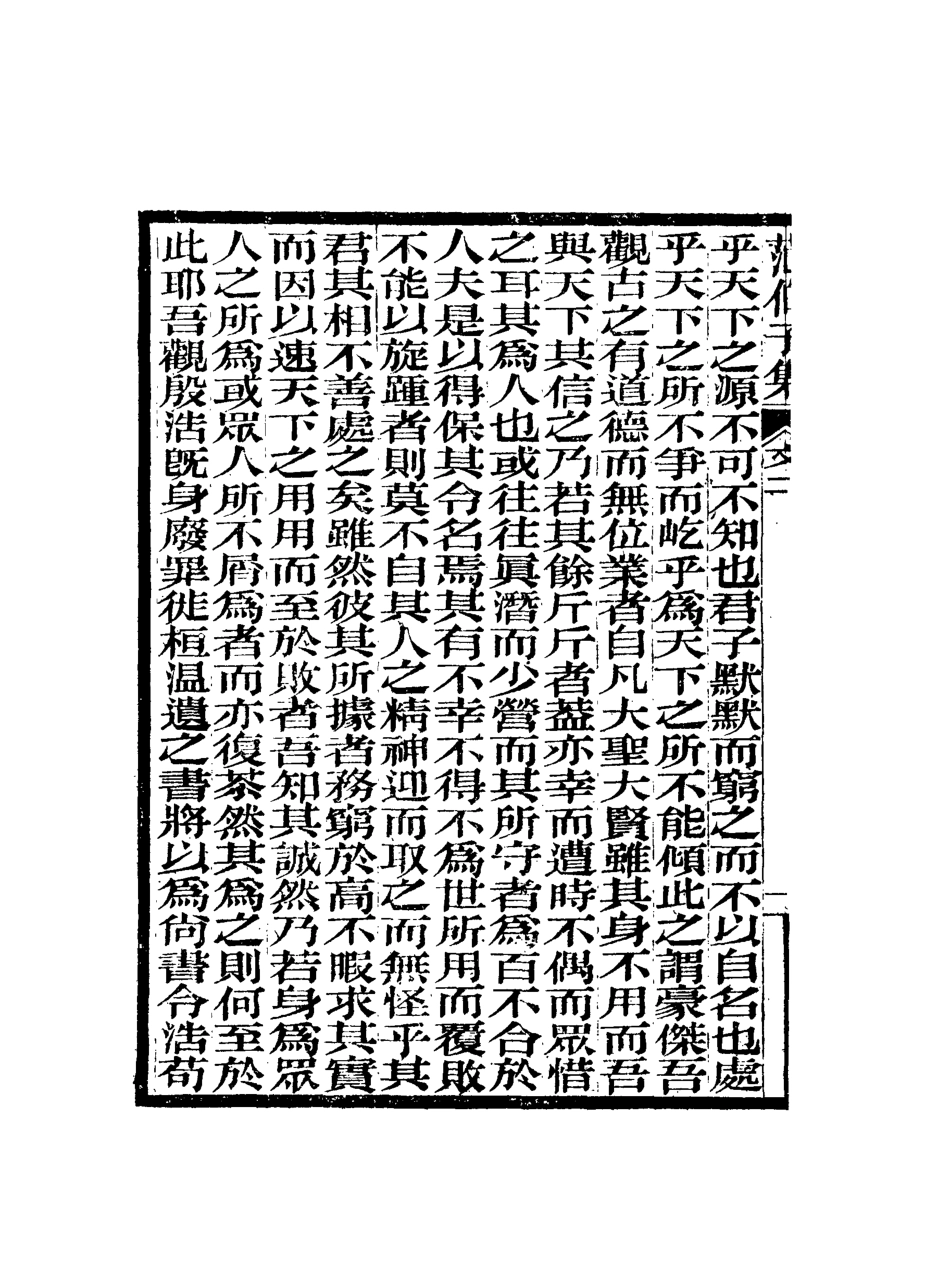 乎天下之源不可不知也君子默默而窮之而不以自名也處
乎天下之所不爭而屹乎爲天下之所不能傾此之謂豪傑吾
觀古之有道德而無位業者自凡大聖大賢雖其身不用而吾
與天下其信之乃若其餘斤斤者葢亦幸而遭時不偶而眾惜
之耳其爲人也或往往眞潛而少營而其所守者爲百不合於
人夫是以得保其令名焉其有不幸不得不爲世所用而覆敗
不能以旋踵者則莫不自其人之精神迎而取之而無怪乎其
君其相不善處之矣雖然彼其所據者務窮於高不暇求其實
而因以速天下之用用而至於敗者吾知其誠然乃若身爲眾
人之所爲或眾人所不屑爲者而亦復茶然其爲之則何至於
此耶吾觀殷浩旣身廢罪徙桓温遺之書將以爲尙書令浩苟